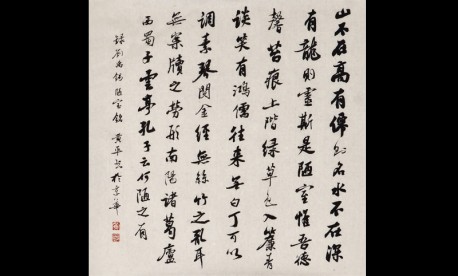 山不在高有仙則名水不在深
有龍則靈斯是陋室惟吾德
馨苔痕上階綠草色入簾青
談笑有鴻儒往來無白丁可以
調素琴閱金經無絲竹之亂耳
無案牘之勞形南陽諸葛廬
西蜀子雲亭孔子云何陋之有
錄劉禹錫陋室銘 黃平 於京華